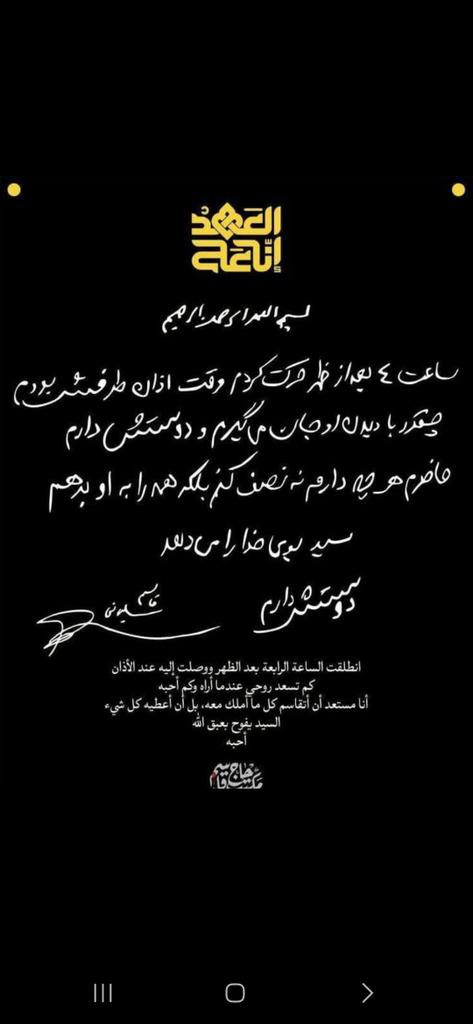 إنّا على العهد
بسم الله الرحمن الرحیم
ساعت ٤ بعد از ظهر حرکت کردم وقت اذان طرفش بودم
چقدر با دیدن او جان می‌گیرم و دوستش دارم
حاضرم هر چه دارم نه نصف کنم بلکه همه را به او بدهم
سید بوی خدا را می‌دهد
دوستش دارم
قاسم سلیمانی
انطلقت الساعة الرابعة بعد الظهر ووصلت إليه عند الأذان
كم تسعد روحي عندما أراه وكم أحبه
أنا مستعد أن أتقاسم كل ما أملك معه، بل أن أعطيه كل شيء
السيد يفوح بعبق الله
أحبه
مکتب حاج قاسم